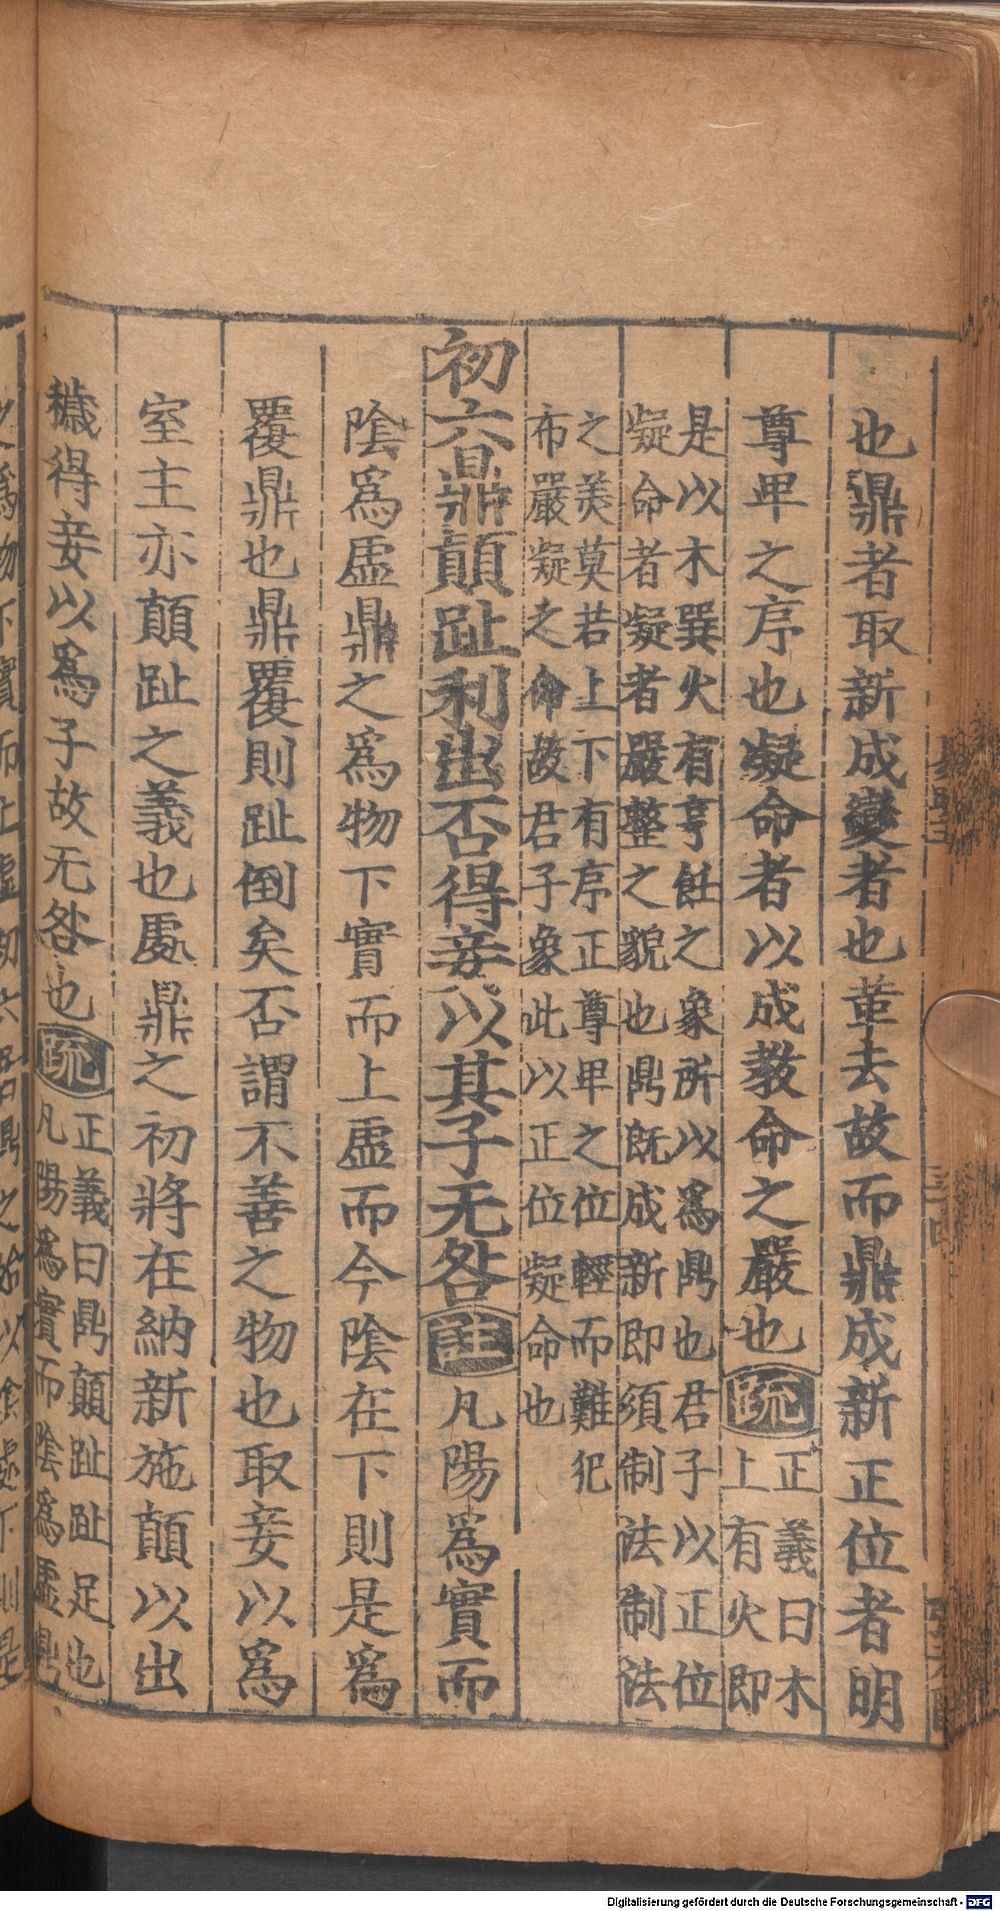 也鼎者取新成變者也革去故而鼎成新正位者明
尊卑之序也凝命者以成教命之嚴也疏正義曰木
上有火即
是以木巽火有亨飪之象所以爲鼎也君子以正位
凝命者凝者嚴整之貌也鼎既成新即須制法制法
之美莫若上下有序正尊卑之位輕而難犯
布嚴凝之命故君子象此以正位凝命也
初六鼎顛趾利出否得妾以其子无咎註凡陽爲實而
陰爲虛鼎之爲物下實而上虛而今陰在下則是爲
覆鼎也鼎覆則趾倒矣否謂不善之物也取妾以爲
室主亦顛趾之義也處鼎之初將在納新施顛以出
穢得妾以爲子故无咎也疏正義曰鼎顛趾趾足也
凡陽爲實而陰爲虛鼎
之爲物下實而上虛初六
Digitalisierung gefördert durch die Deutsche Forschungsgemeinschaft - DFG